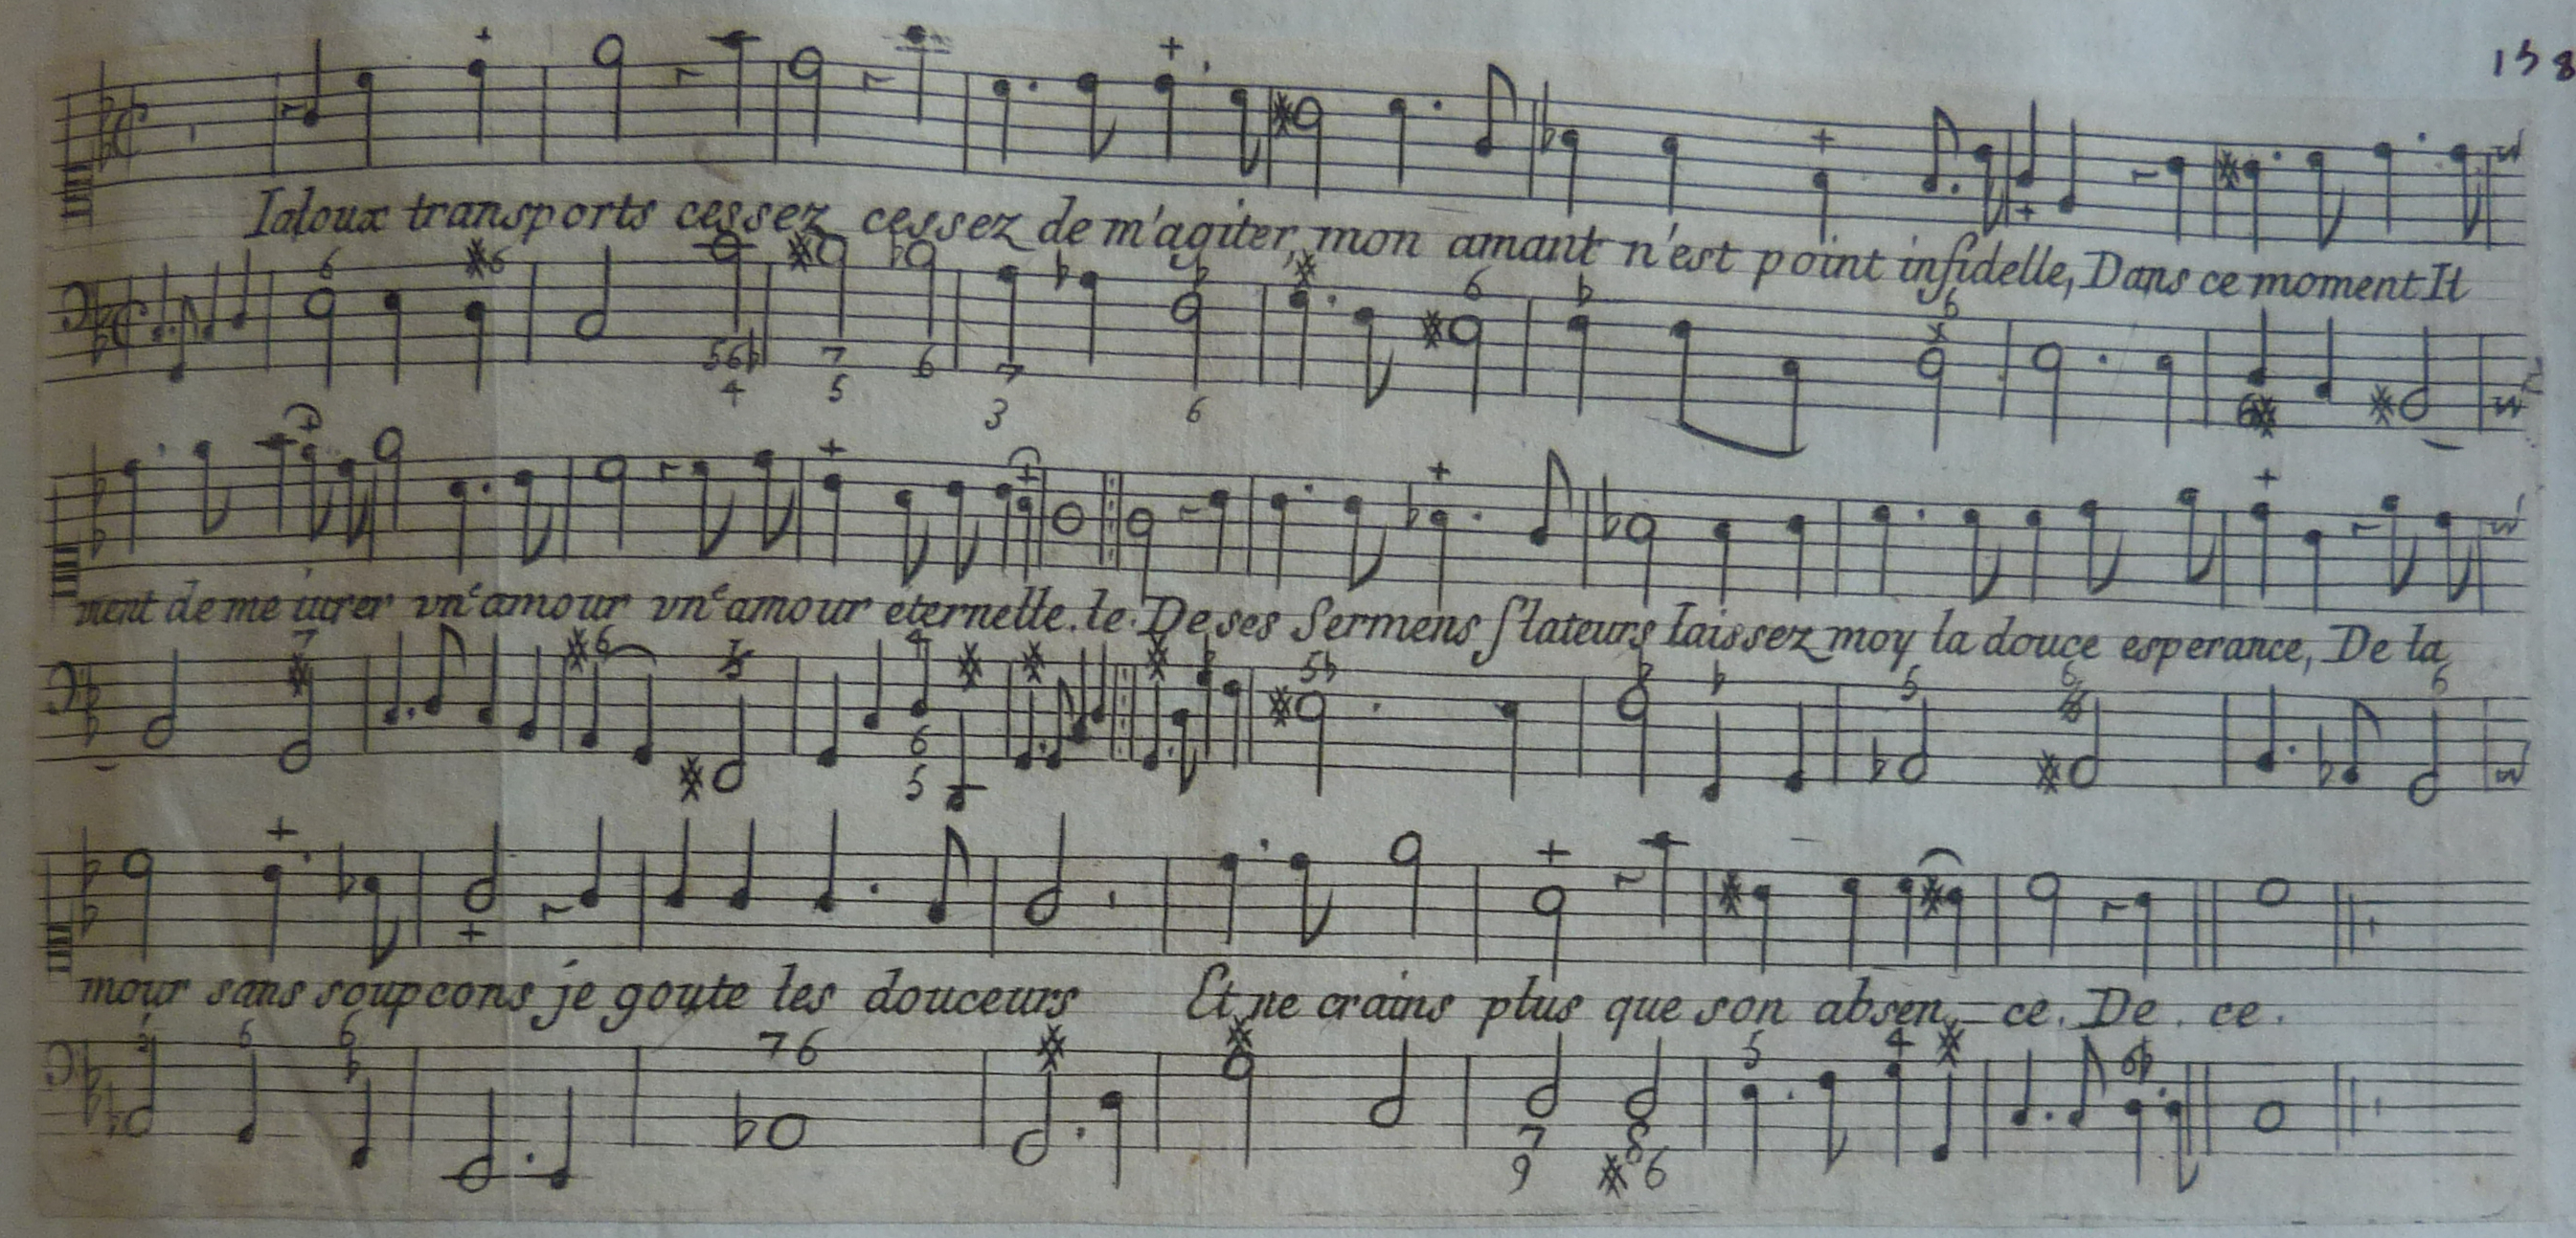 158
Ialoux transports cessez cessez de m'agiter, mon amant n'est point infidelle, Dans ce moment Il
6 *6 6 ♭ * 6 ♭ 6
56♭ 7 6 7
4 5 3 6 6*
vient de me iurer vn^e amour vn^e amour eternelle. le. De ses Sermens flateurs laissez moy la douce esperance, De la
7 *6 4 * * * ♭ 5♭ ♭ ♭ 5 6 6
* 6
5
mour sans soupcons je goute les douceurs Et ne crains plus que son absen_ce. De. ce.
6 6 76 * * 5 4 * 6♭
7 8
9 *6